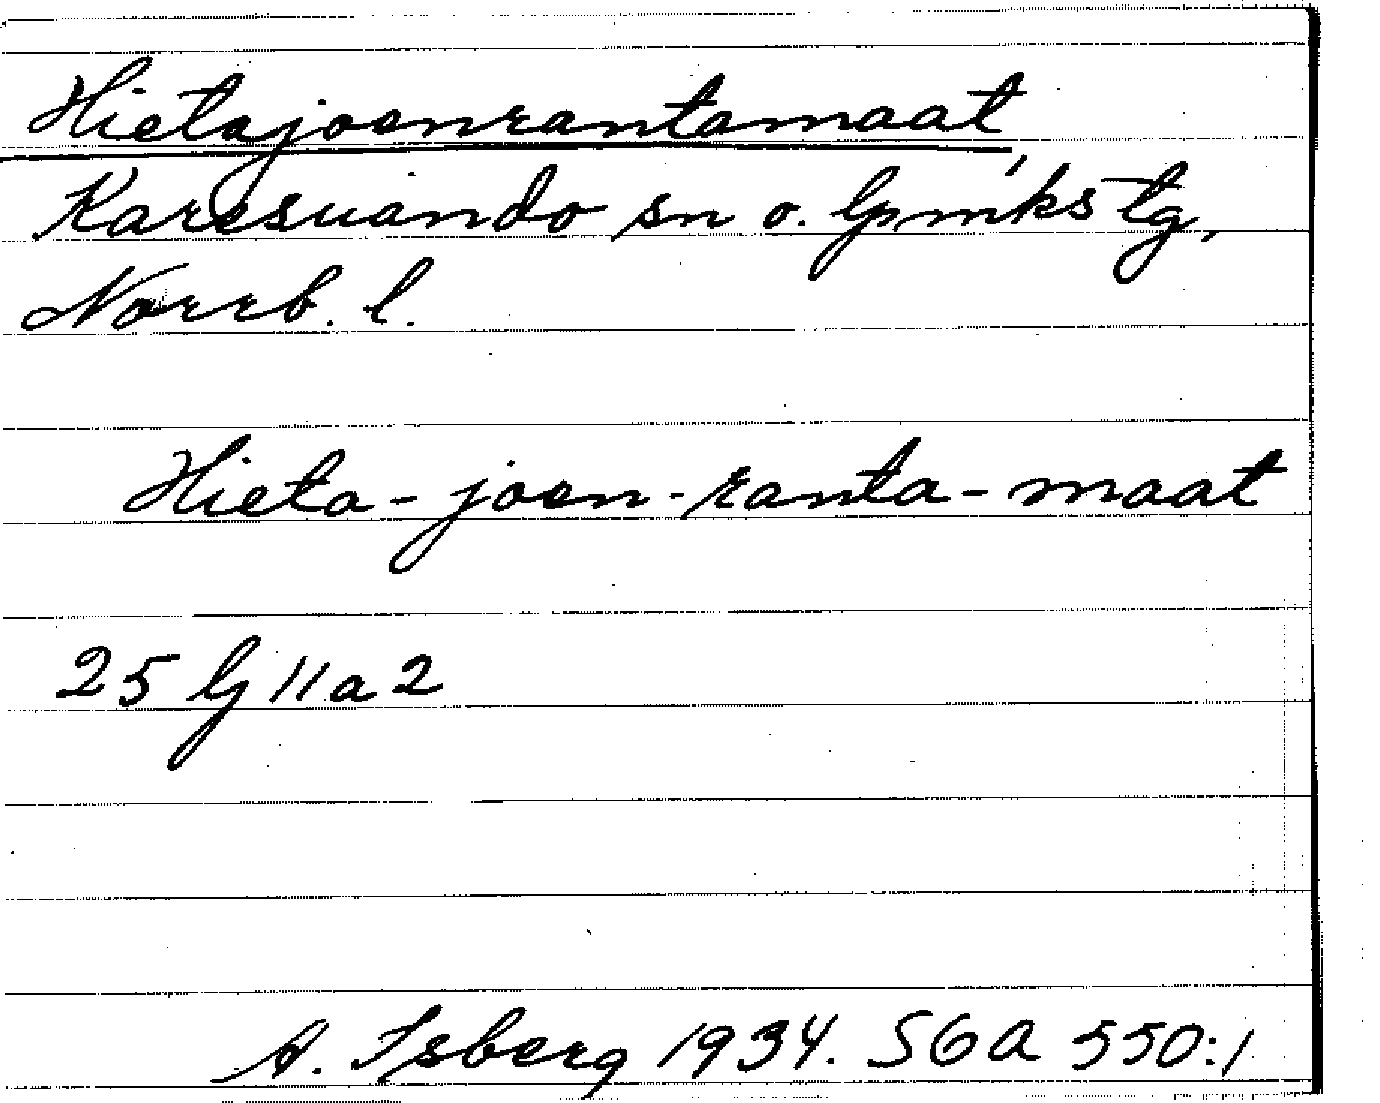 Hietajoenrantamaat
Karesuando sn o. lpmks tg,
Norrb. l.
Hieta-joen-ranta-maat
25 lj 11 a 2
A. Isberg 1934. SGA 550:1